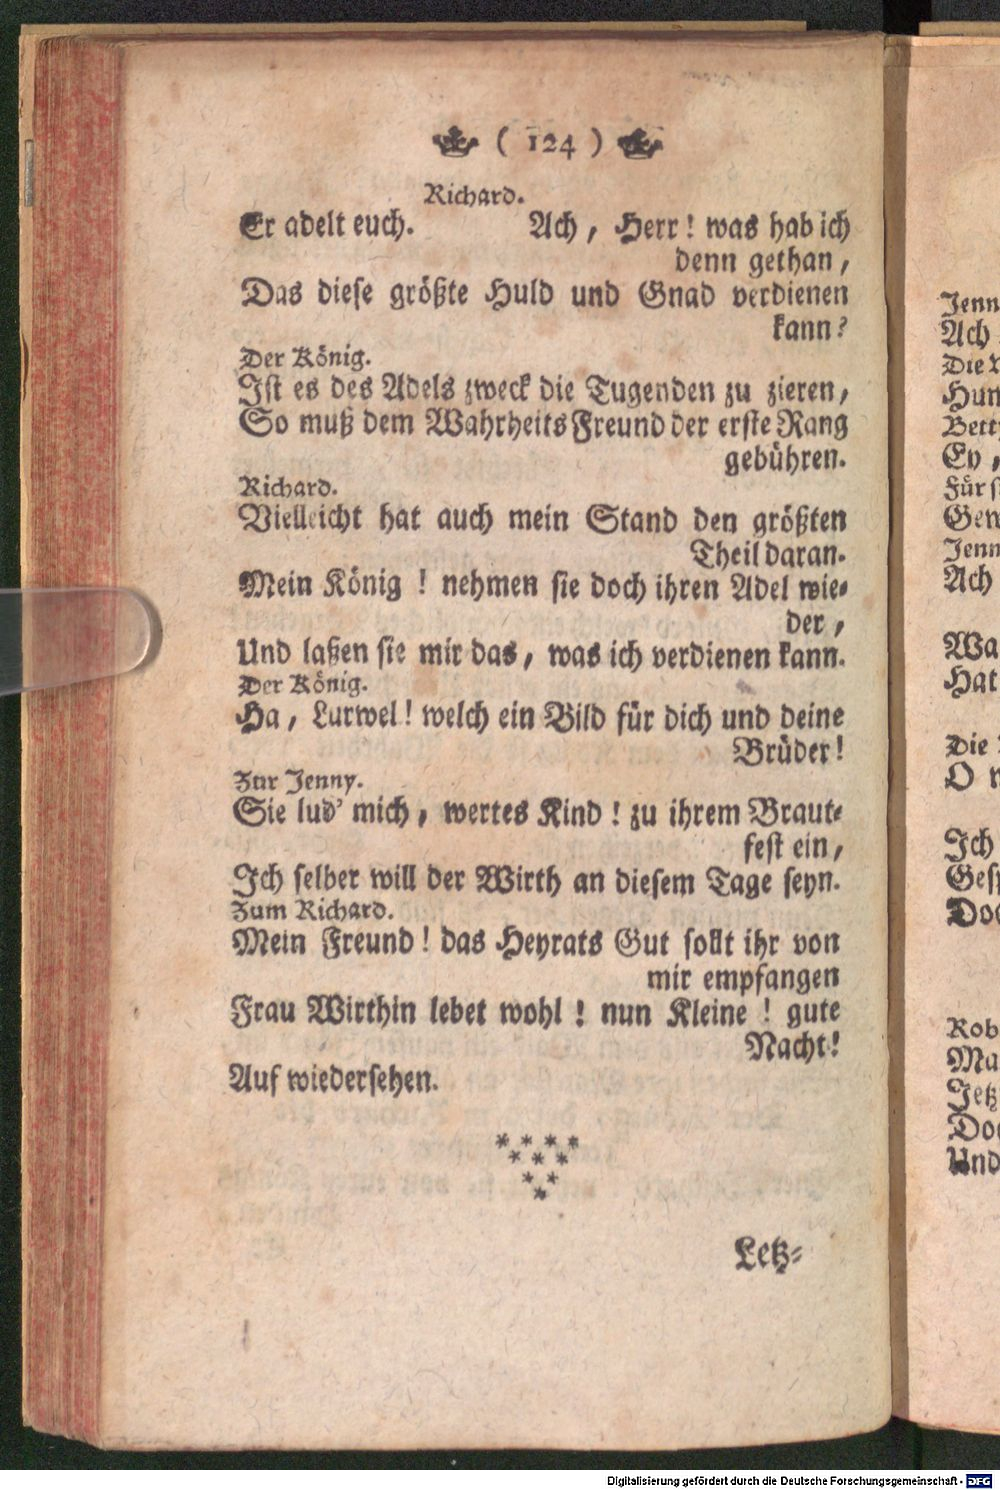 ( 124 )
Richard.
Er adelt euch. Ach, Herr! was hab ich
denn gethan,
Das diese größte Huld und Gnad verdienen
kann?
Der König.
Ist es des Adels zweck die Tugenden zu zieren,
So muß dem Wahrheits Freund der erste Rang
gebühren.
Richard.
Vielleicht hat auch mein Stand den größten
Theil daran.
Mein König! nehmen sie doch ihren Adel wie-
der,
Und laßen sie mir das, was ich verdienen kann.
Der König.
Ha, Lurwel! welch ein Bild für dich und deine
Brüder!
Zur Jenny.
Sie lud' mich, wertes Kind! zu ihrem Braut-
fest ein,
Ich selber will der Wirth an diesem Tage seyn.
Zum Richard.
Mein Freund! das Heyrats Gut sollt ihr von
mir empfangen
Frau Wirthin lebet wohl! nun Kleine! gute
Nacht!
Auf wiedersehen.
* * * *
* * *
* *
*
Letz-
Jenn
Ach
Die
Hun
Bett
Ey,
Für s
Gew
Jenn
Ach
Wa
Hat
Die
O
Ich
Ges
Doc
Rob
Ma
Jetz
Doc
Und
Digitalisierung gefördert durch die Deutsche Forschungsgemeinschaft - DFG